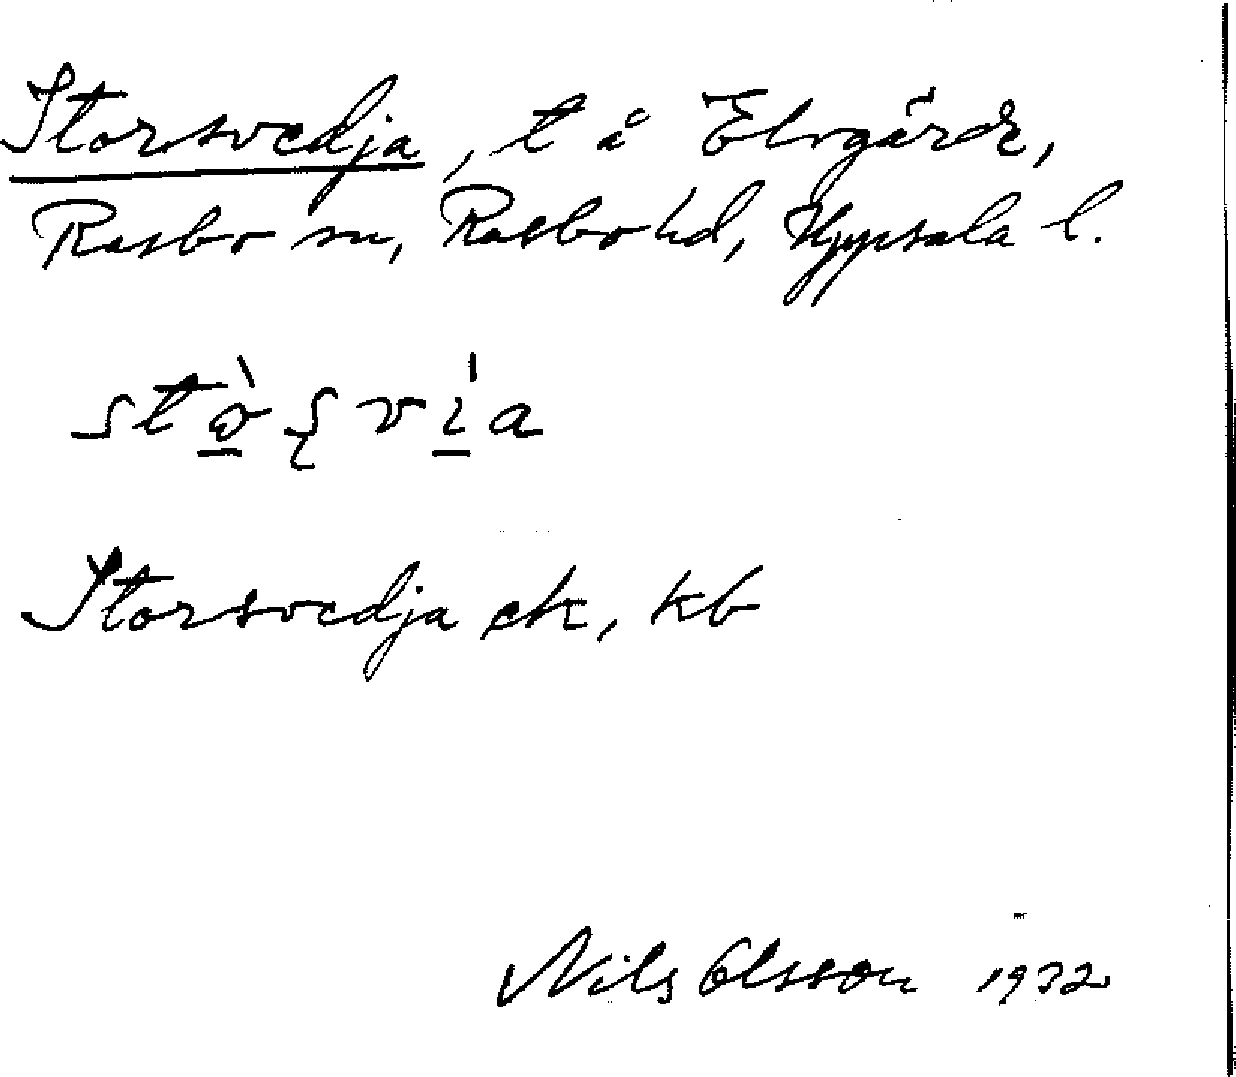 Storsvedja, t å Elvgärde,
Rasbo sn, Rasbo hd, Uppsala l.
Storsvedja ek, kb
Nils Olsson 1932